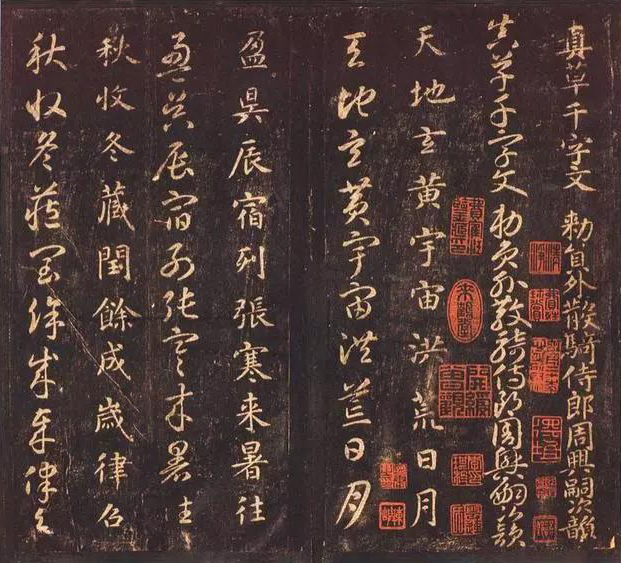 真草千字文 勑員外散騎侍郎周興嗣次韻
真草千字文 勑員外散騎侍郎周興嗣次韻
天地玄黃宇宙洪荒日月
天地玄黃宇宙洪荒日月
盈昃辰宿列張寒来暑往
盈昃辰宿列張寒来暑往
秋收冬藏閏餘成歲律呂
秋收冬藏閏餘成歲律呂